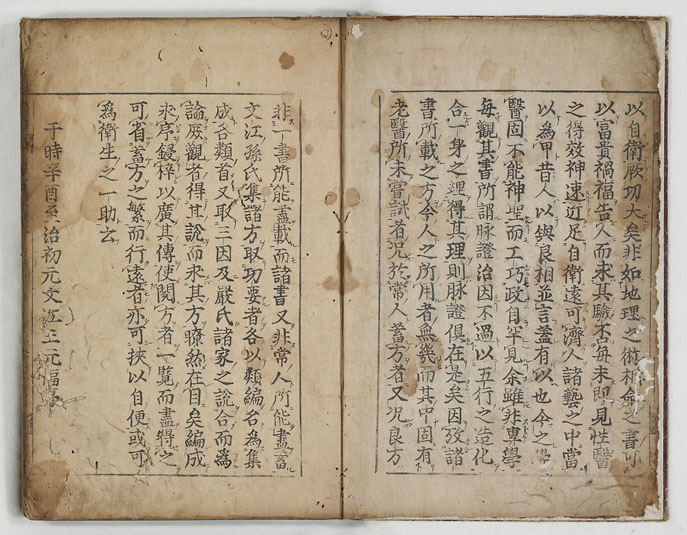 以自衛厥功大矣非如地理之術相命之書可
以富貴禍福告人而求其驗否每未即見性醫
之得效神速近足自衛遠可濟人諸藝之中當
以為甲昔人以與良相並言蓋有以也今之
醫固不能神聖而工巧政自罕見余雖非專學
每觀其書所謂脉證治因不過以五行之造化
合一身之理得其理則脉證俱在是矣因攷諸
書所載之方今人之所用者無幾而其中固有
老醫所未嘗試者况於常人蓄方者又况良方
非一書所能盡載而諸書又非常人所能盡蓄
文江孫氏集諸方取功要者各以類編名為集
成各類者又取三因及嚴氏諸家之說合而為
論厥觀者得其說而求其方瞭然在目矣編成
求序鋟梓以廣其傳使閱方者一覽而盡得之
可省蓄方之繁而行遠者亦可挾以自便或可
為衛生之一助云
于時辛酉至治初元文江王元福